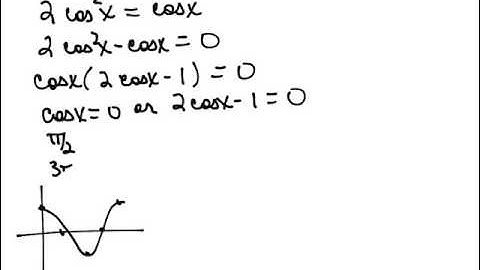 2 cos²x = cosx
2 cos²x - cosx = 0
cosx(2cosx - 1) = 0
cosx = 0 or 2cosx - 1 = 0
π/2
3π